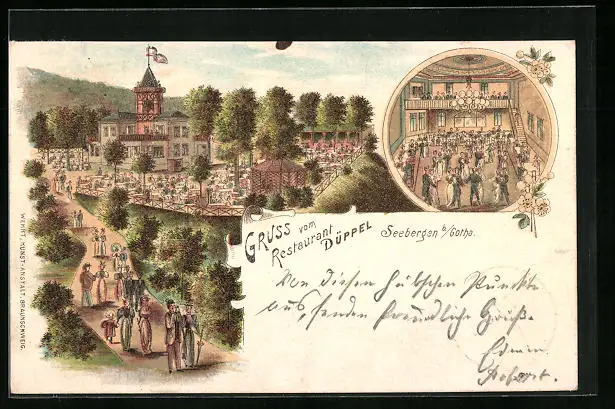 GRUSS vom
Restaurant
DÜPPEL
Seebergen b/Gotha.
Von diesen hübschen Punkte
aus, senden freundliche Grüße
Edwin
WEHRT, KUNST-ANSTALT, BRAUNSCHWEIG.